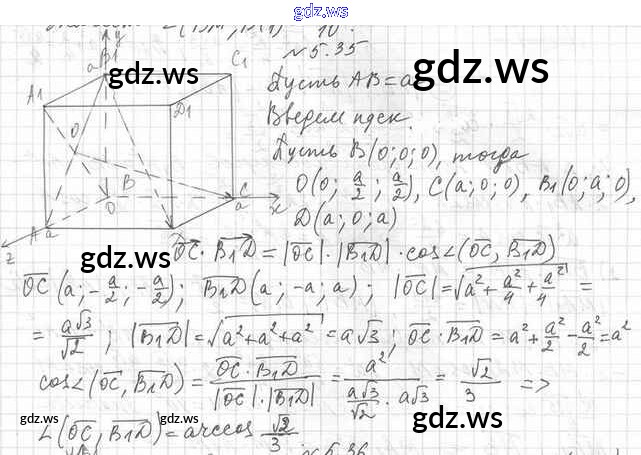 gdz.ws
№ 5.35
Пусть AB = a
Введем пдск.
Пусть B(0; 0; 0), тогда
O(0; a/2; a/2), C(a; 0; 0), B1(0; a; 0),
D(a; 0; a)
OC · B1D = |OC| · |B1D| · cos∠(OC, B1D)
OC (a; -a/2; -a/2); B1D (a; -a; a); |OC| = √(a² + a²/4 + a²/4) =
= a√3/√2; |B1D| = √(a² + a² + a²) = a√3; OC · B1D = a² + a²/2 - a²/2 = a²
cos∠(OC, B1D) = OC · B1D / |OC| · |B1D| = a² / (a√3/√2 · a√3) = √2/3 =>
∠(OC, B1D) = arccos √2/3
№ 5.36
y
B1
a
C1
A1
D1
O
B
O
C
a
x
A
a
z
gdz.ws
gdz.ws
gdz.ws
gdz.ws
gdz.ws
gdz.ws
gdz.ws